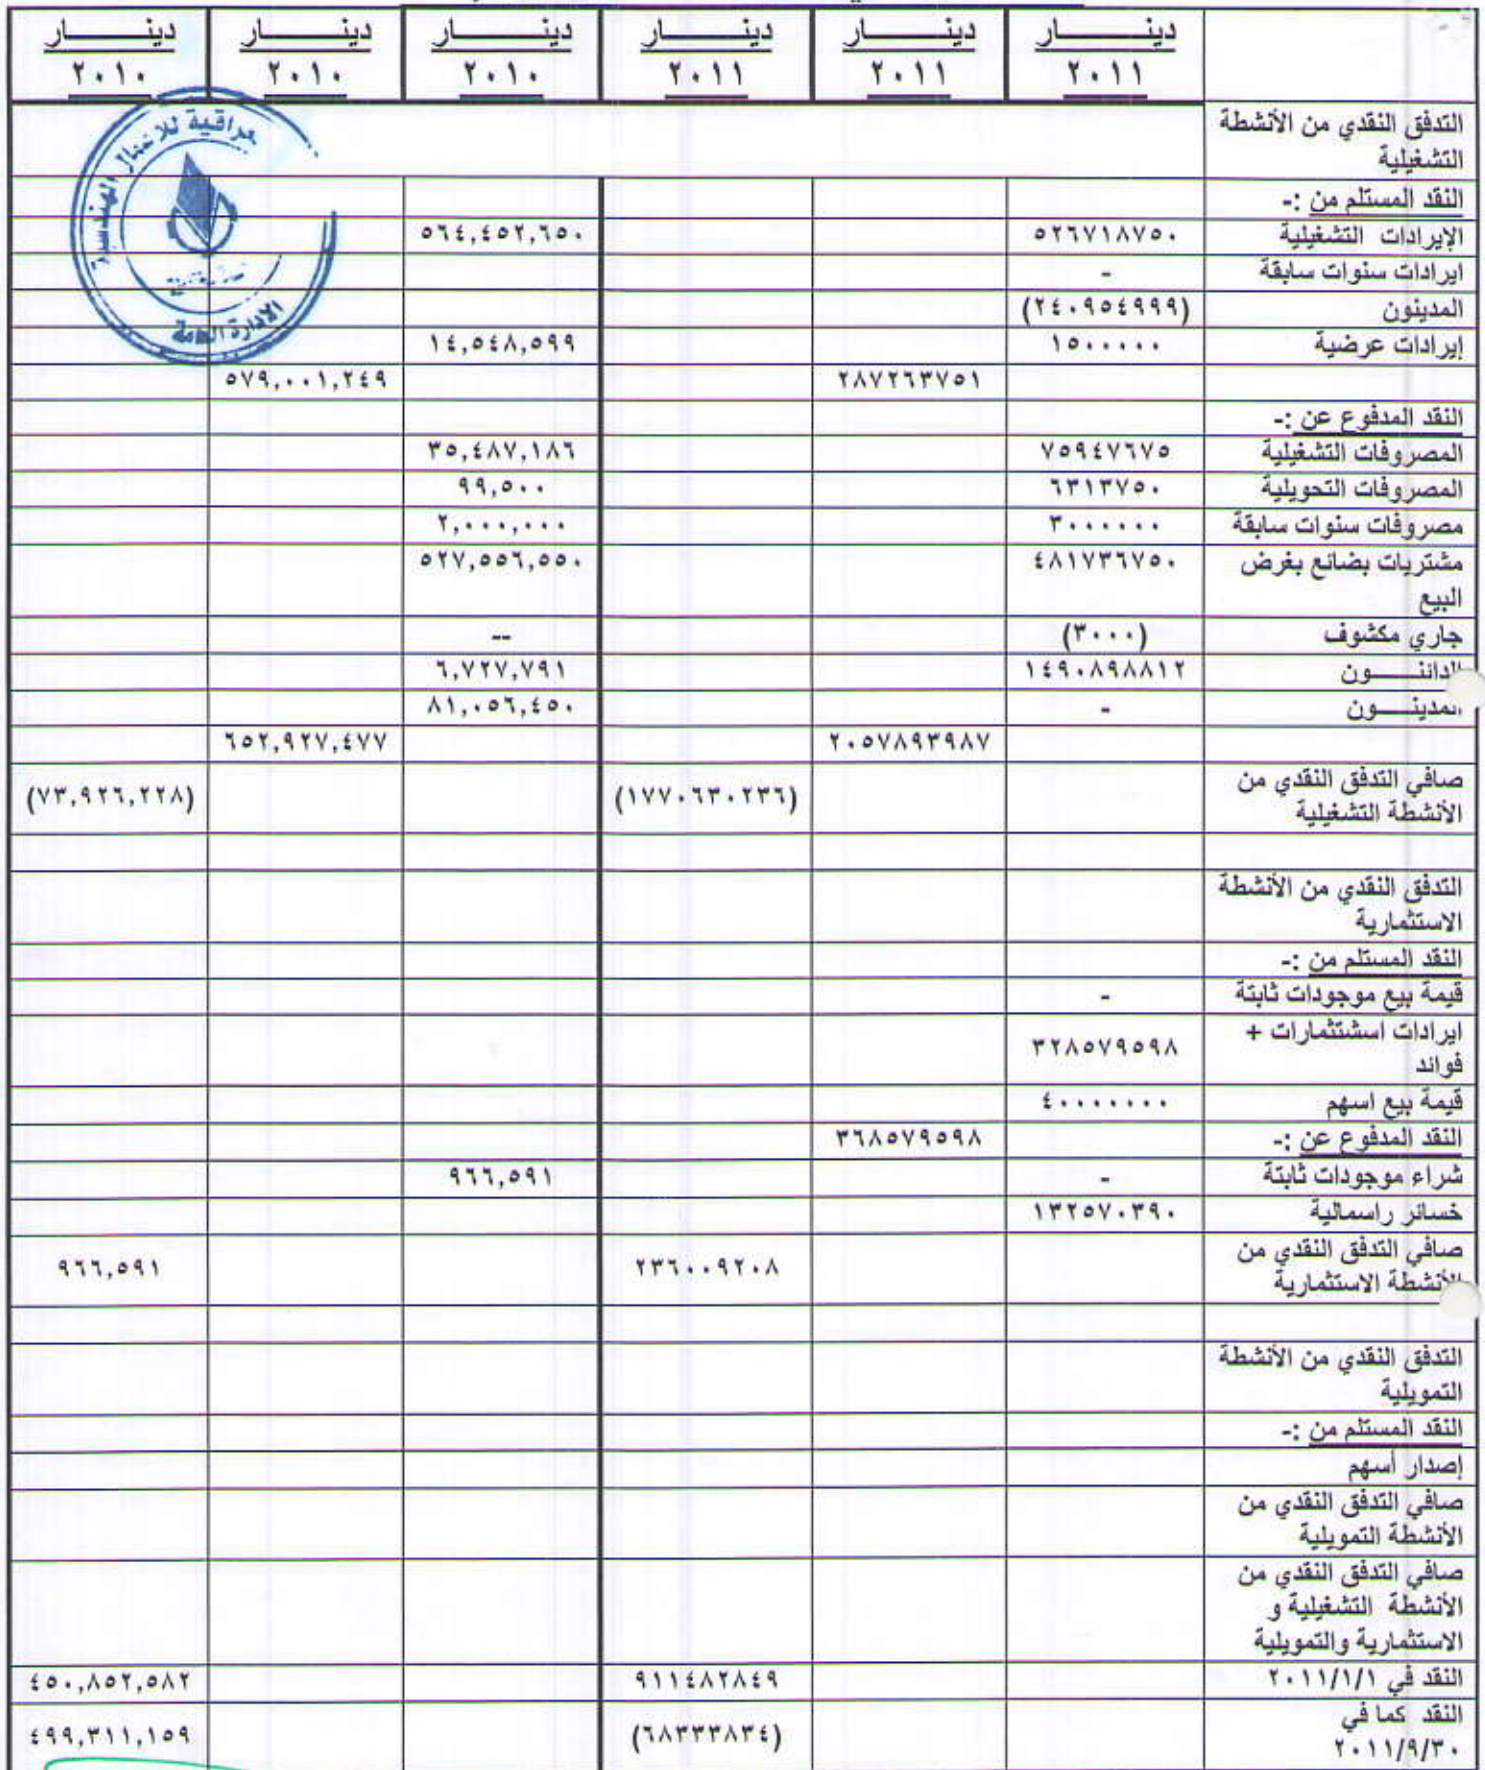 دينــــار دينــــار دينــــار دينــــار دينــــار دينــــار
٢٠١١ ٢٠١١ ٢٠١١ ٢٠١٠ ٢٠١٠ ٢٠١٠
التدفق النقدي من الأنشطة
التشغيلية
النقد المستلم من :-
الإيرادات التشغيلية ٥٢٦٧١٨٧٥٠ ٥٦٤,٤٥٢,٦٥٠
ايرادات سنوات سابقة -
المدينون (٢٤٠٩٥٤٩٩٩)
إيرادات عرضية ١٥٠٠٠٠٠ ١٤,٥٤٨,٥٩٩
٢٨٧٢٦٣٧٥١ ٥٧٩,٠٠١,٢٤٩
النقد المدفوع عن :-
المصروفات التشغيلية ٧٥٩٤٧٦٧٥ ٣٥,٤٨٧,١٨٦
المصروفات التحويلية ٦٣١٣٧٥٠ ٩٩,٥٠٠
مصروفات سنوات سابقة ٣٠٠٠٠٠٠ ٢,٠٠٠,٠٠٠
مشتريات بضائع بغرض ٤٨١٧٣٦٧٥٠ ٥٢٧,٥٥٦,٥٥٠
البيع
جاري مكشوف (٣٠٠٠) --
الدائنــــون ١٤٩٠٨٩٨٨١٢ ٦,٧٢٧,٧٩١
المدينــــون - ٨١,٠٥٦,٤٥٠
٢٠٥٧٨٩٣٩٨٧ ٦٥٢,٩٢٧,٤٧٧
صافي التدفق النقدي من
الأنشطة التشغيلية (١٧٧٠٦٣٠٢٣٦) (٧٣,٩٢٦,٢٢٨)
التدفق النقدي من الأنشطة
الاستثمارية
النقد المستلم من :-
قيمة بيع موجودات ثابتة -
ايرادات اسشتثمارات +
فوائد ٣٢٨٥٧٩٥٩٨
قيمة بيع اسهم ٤٠٠٠٠٠٠٠
النقد المدفوع عن :- ٣٦٨٥٧٩٥٩٨
شراء موجودات ثابتة - ٩٦٦,٥٩١
خسائر راسمالية ١٣٢٥٧٠٣٩٠
صافي التدفق النقدي من
الأنشطة الاستثمارية ٢٣٦٠٠٩٢٠٨ ٩٦٦,٥٩١
التدفق النقدي من الأنشطة
التمويلية
النقد المستلم من :-
إصدار أسهم
صافي التدفق النقدي من
الأنشطة التمويلية
صافي التدفق النقدي من
الأنشطة التشغيلية و
الاستثمارية والتمويلية
النقد في ٢٠١١/١/١ ٩١١٤٨٢٨٤٩ ٤٥٠,٨٥٢,٥٨٢
النقد كما في
٢٠١١/٩/٣٠ (٦٨٣٣٣٨٣٤) ٤٩٩,٣١١,١٥٩
عراقية للاعمال الهندسية
الادارة العامة